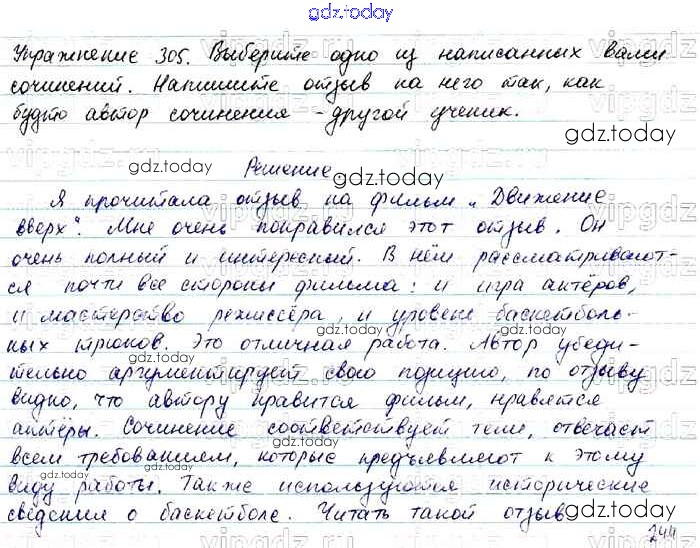 gdz.today
Упражнение 305. Выберите одно из написанных вами
сочинений. Напишите отзыв на него так, как
будто автор сочинения - другой ученик.
gdz.today
gdz.today
Решение.
gdz.today
Я прочитала отзыв на фильм „Движение
вверх“. Мне очень понравился этот отзыв. Он
очень полный и интересный. В нём рассматривают-
ся почти все стороны фильма: и игра актёров,
и мастерство режиссёра, и уровень баскетболь-
ных трюков. Это отличная работа. Автор убеди-
тельно аргументирует свою позицию, по отзыву
видно, что автору нравится фильм, нравятся
актёры. Сочинение соответствует теме, отвечает
всем требованиям, которые предъявляют к этому
виду работы. Также используются исторические
сведения о баскетболе. Читать такой отзыв
244